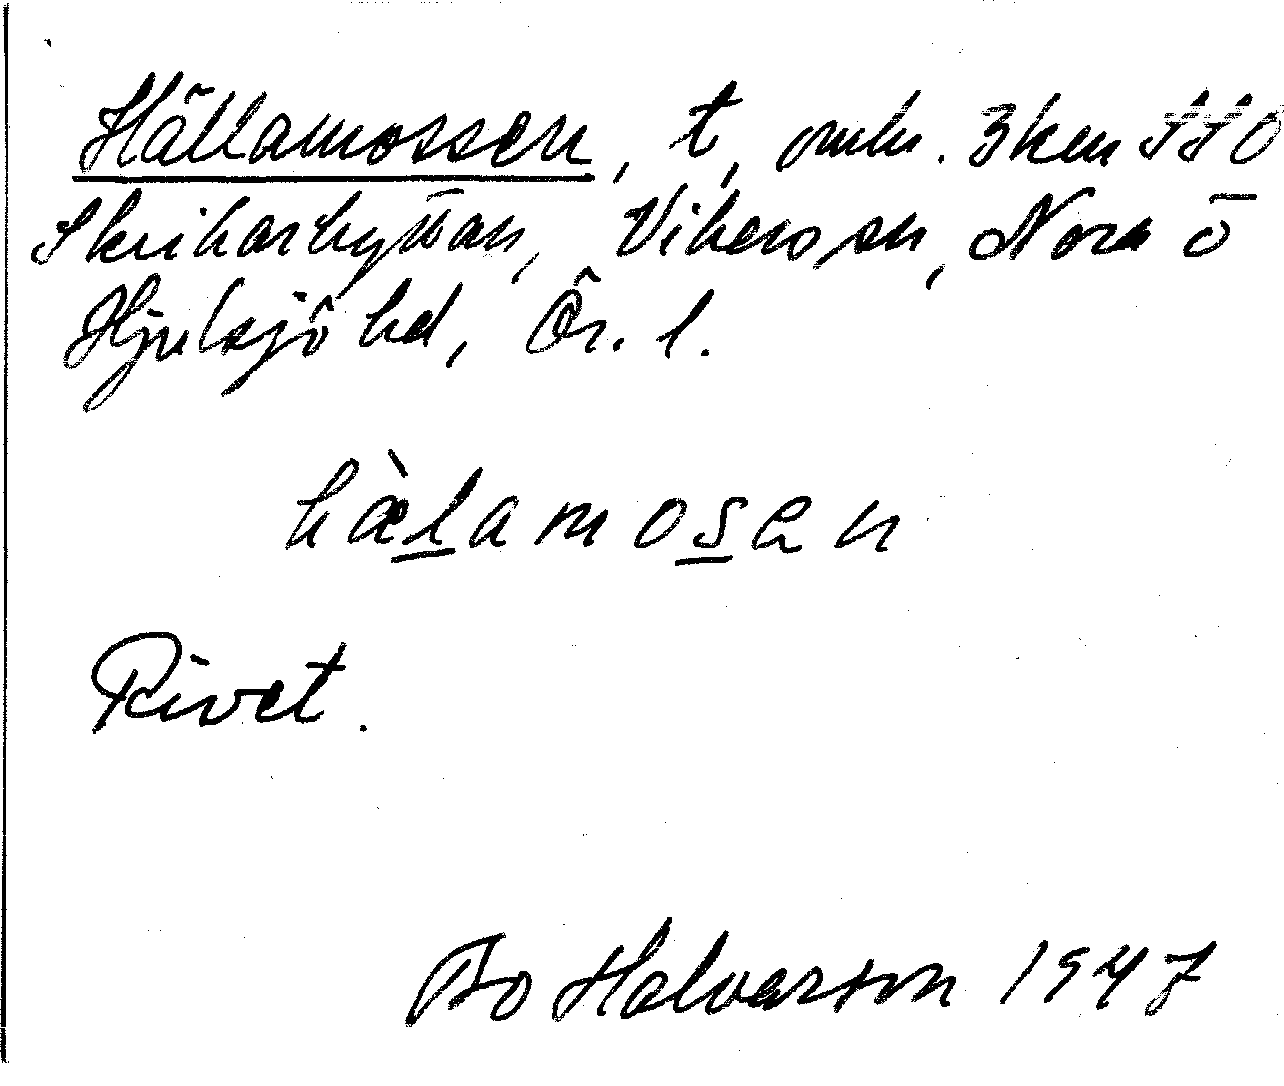 Hällamossen, t, omkr. 3 km SSO
Skrikarhyttan, Vikers sn, Nora o
Hjulsjö hd, Ör. l.
hàlamosen
Rivet.
Bo Halvarson 1947